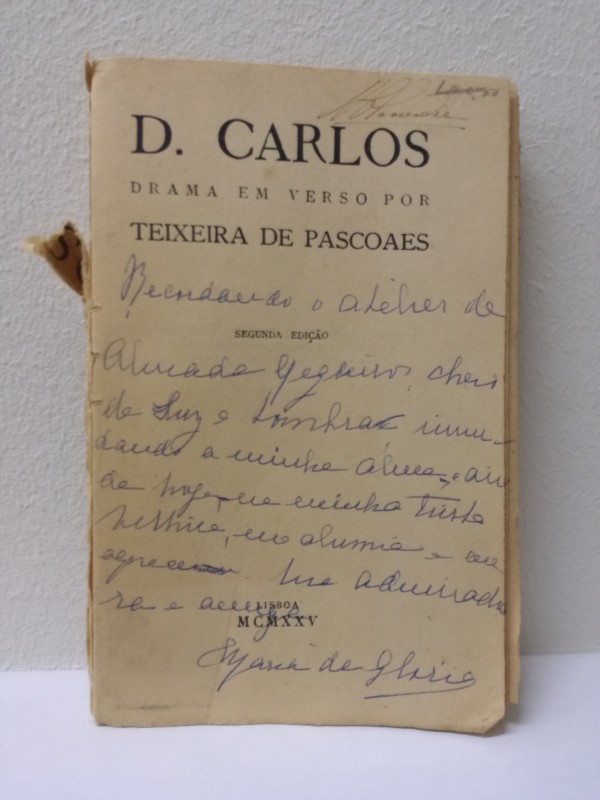 D. CARLOS
DRAMA EM VERSO POR
TEIXEIRA DE PASCOAES
Recordando o atelier de
SEGUNDA EDIÇÃO
Almada Negreiros, cheio
de Luz e sombras inun-
dando a minha alma, ain
da hoje, na minha triste
velhice, me alumia e me
aquece. Sua admirado
ra e amiga
LISBOA
MCMXXV
Maria da Glória